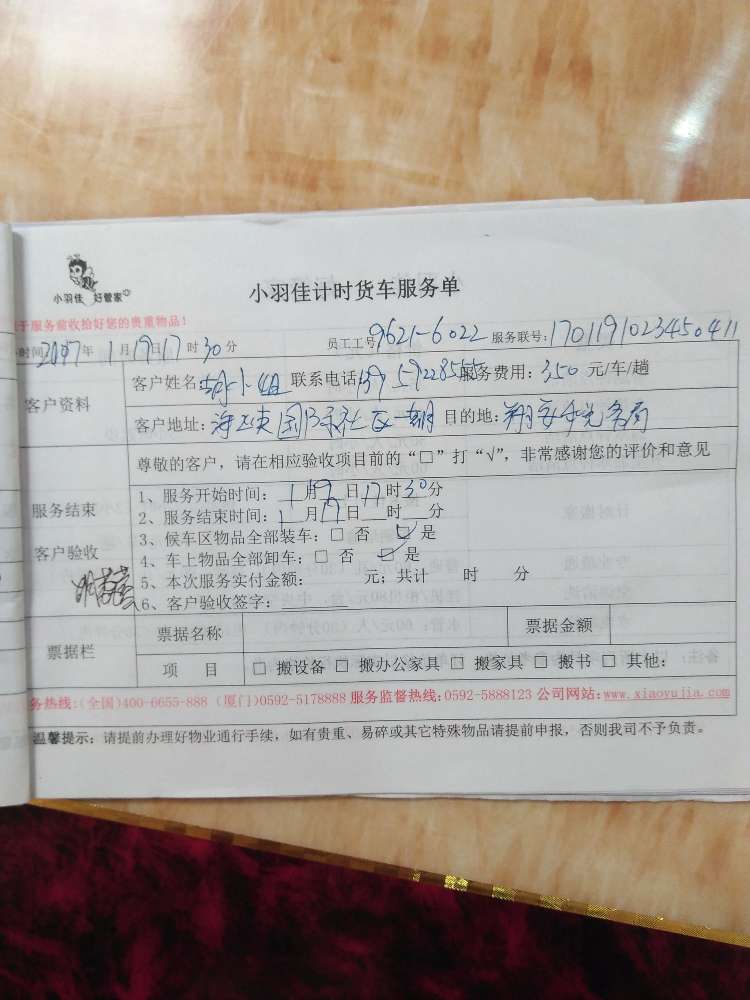 小羽佳 好管家
小羽佳计时货车服务单
于服务前收拾好您的贵重物品！
时间2017年 1月19日17时30分 员工工号9621-6022 服务联号：1701191023450411
客户资料
客户姓名 小姐 联系电话 服务费用：350元/车/趟
客户地址： 国际社区一期 目的地：翔安 税务局
尊敬的客户，请在相应验收项目前的“□”打“√”，非常感谢您的评价和意见
服务结束
客户验收
1、服务开始时间：1月19日17时30分
2、服务结束时间：1月19日__时__分
3、候车区物品全部装车：□ 否 ☑ 是
4、车上物品全部卸车：□ 否 ☑ 是
5、本次服务实付金额： 元；共计 时 分
6、客户验收签字：
票据栏
票据名称 票据金额
项 目 □ 搬设备 □ 搬办公家具 □ 搬家具 □ 搬书 □ 其他：
务热线：(全国)400-6655-888 (厦门)0592-5178888 服务监督热线：0592-5888123 公司网站：www.xiaoyujia.com
温馨提示：请提前办理好物业通行手续，如有贵重、易碎或其它特殊物品请提前申报，否则我司不予负责。